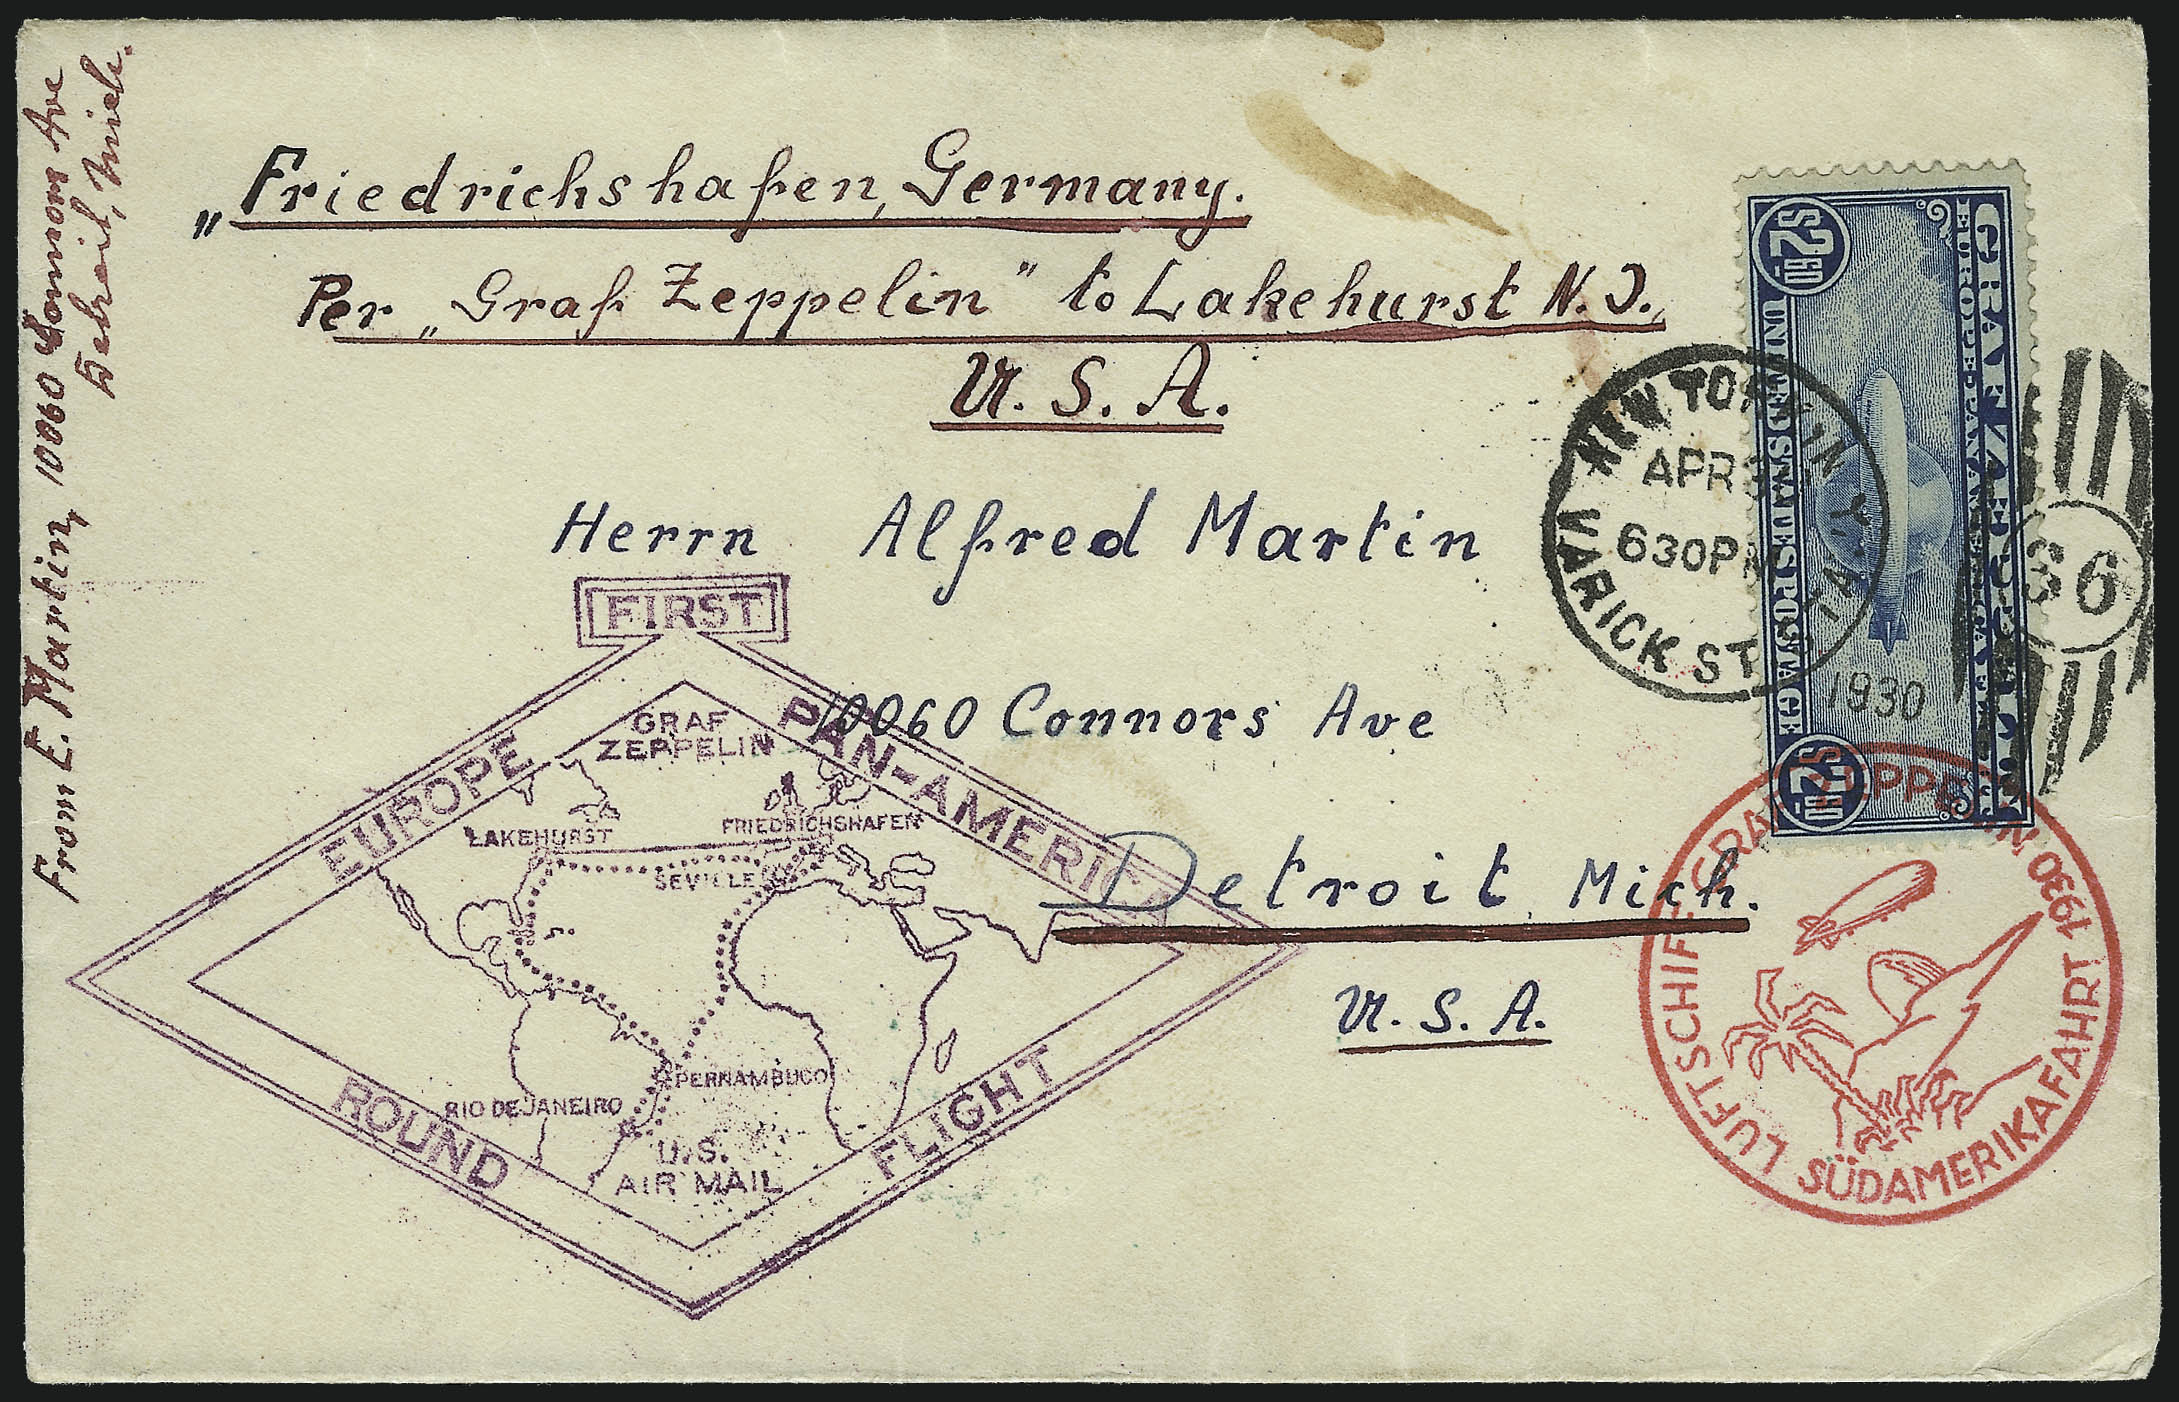 From E. Martin, 10060 Connors Ave
Detroit, Mich.
„Friedrichshafen, Germany.
Per „Graf Zeppelin" to Lakehurst N.J.,
U. S. A.
Herrn Alfred Martin
10060 Connors Ave
Detroit, Mich.
U. S. A.
FIRST
EUROPE PAN-AMERICA
ROUND FLIGHT
GRAF
ZEPPELIN
LAKEHURST
FRIEDRICHSHAFEN
SEVILLE
PERNAMBUCO
RIO DE JANEIRO
U.S.
AIR MAIL
NEW YORK, N.Y.
APR
630 PM
1930
VARICK ST. STA.
S 6
$2.60
GRAF ZEPPELIN
EUROPE PAN-AMERICA
UNITED STATES POSTAGE
$2.60
LUFTSCHIFF GRAF ZEPPELIN 1930
SÜDAMERIKAFAHRT